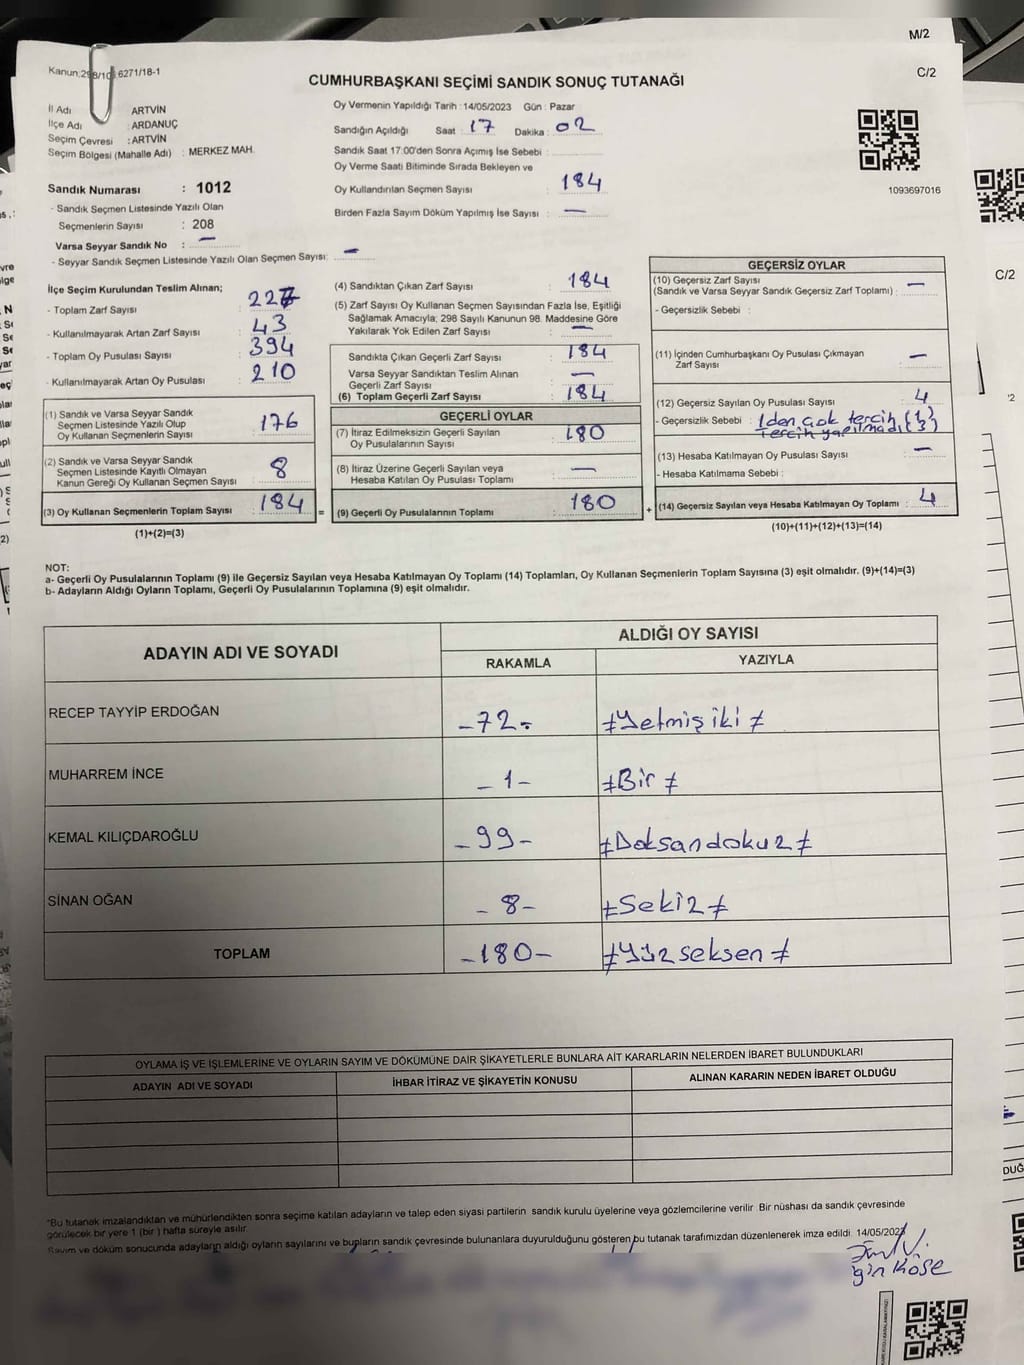 M/2
Kanun:298/10 6271/18-1
C/2
CUMHURBAŞKANI SEÇİMİ SANDIK SONUÇ TUTANAĞI
İl Adı : ARTVİN
İlçe Adı : ARDANUÇ
Seçim Çevresi : ARTVİN
Seçim Bölgesi (Mahalle Adı) : MERKEZ MAH.
Oy Vermenin Yapıldığı Tarih : 14/05/2023 Gün : Pazar
Sandığın Açıldığı Saat : 17 Dakika : 02
Sandık Saat 17:00'den Sonra Açımış İse Sebebi :
Oy Verme Saati Bitiminde Sırada Bekleyen ve
Oy Kullandırılan Seçmen Sayısı : 184
Birden Fazla Sayım Döküm Yapılmış İse Sayısı : —
1093697016
Sandık Numarası : 1012
- Sandık Seçmen Listesinde Yazılı Olan
Seçmenlerin Sayısı : 208
Varsa Seyyar Sandık No : —
- Seyyar Sandık Seçmen Listesinde Yazılı Olan Seçmen Sayısı: —
İlçe Seçim Kurulundan Teslim Alınan;
- Toplam Zarf Sayısı : 227
- Kullanılmayarak Artan Zarf Sayısı : 43
- Toplam Oy Pusulası Sayısı : 394
- Kullanılmayarak Artan Oy Pusulası : 210
(1) Sandık ve Varsa Seyyar Sandık
Seçmen Listesinde Yazılı Olup
Oy Kullanan Seçmenlerin Sayısı : 176
(2) Sandık ve Varsa Seyyar Sandık
Seçmen Listesinde Kayıtlı Olmayan
Kanun Gereği Oy Kullanan Seçmen Sayısı : 8
(3) Oy Kullanan Seçmenlerin Toplam Sayısı : 184 =
(1)+(2)=(3)
(4) Sandıktan Çıkan Zarf Sayısı : 184
(5) Zarf Sayısı Oy Kullanan Seçmen Sayısından Fazla İse, Eşitliği
Sağlamak Amacıyla; 298 Sayılı Kanunun 98. Maddesine Göre
Yakılarak Yok Edilen Zarf Sayısı : —
Sandıkta Çıkan Geçerli Zarf Sayısı : 184
Varsa Seyyar Sandıktan Teslim Alınan
Geçerli Zarf Sayısı : —
(6) Toplam Geçerli Zarf Sayısı : 184
GEÇERLİ OYLAR
(7) İtiraz Edilmeksizin Geçerli Sayılan
Oy Pusulalarının Sayısı : 180
(8) İtiraz Üzerine Geçerli Sayılan veya
Hesaba Katılan Oy Pusulası Toplamı : —
(9) Geçerli Oy Pusulalarının Toplamı : 180 +
GEÇERSİZ OYLAR
(10) Geçersiz Zarf Sayısı
(Sandık ve Varsa Seyyar Sandık Geçersiz Zarf Toplamı) : —
- Geçersizlik Sebebi :
(11) İçinden Cumhurbaşkanı Oy Pusulası Çıkmayan
Zarf Sayısı : —
(12) Geçersiz Sayılan Oy Pusulası Sayısı : 4
- Geçersizlik Sebebi : 1den çok tercih (1)
Tercih yapılmadı (3)
(13) Hesaba Katılmayan Oy Pusulası Sayısı : —
- Hesaba Katılmama Sebebi :
(14) Geçersiz Sayılan veya Hesaba Katılmayan Oy Toplamı : 4
(10)+(11)+(12)+(13)=(14)
NOT:
a- Geçerli Oy Pusulalarının Toplamı (9) ile Geçersiz Sayılan veya Hesaba Katılmayan Oy Toplamı (14) Toplamları, Oy Kullanan Seçmenlerin Toplam Sayısına (3) eşit olmalıdır. (9)+(14)=(3)
b- Adayların Aldığı Oyların Toplamı, Geçerli Oy Pusulalarının Toplamına (9) eşit olmalıdır.
ADAYIN ADI VE SOYADI
ALDIĞI OY SAYISI
RAKAMLA YAZIYLA
RECEP TAYYİP ERDOĞAN -72- ≠Yetmiş iki≠
MUHARREM İNCE -1- ≠Bir≠
KEMAL KILIÇDAROĞLU -99- ≠Doksandokuz≠
SİNAN OĞAN -8- ≠Sekiz≠
TOPLAM -180- ≠Yüz seksen≠
OYLAMA İŞ VE İŞLEMLERİNE VE OYLARIN SAYIM VE DÖKÜMÜNE DAİR ŞİKAYETLERLE BUNLARA AİT KARARLARIN NELERDEN İBARET BULUNDUKLARI
ADAYIN ADI VE SOYADI İHBAR İTİRAZ VE ŞİKAYETİN KONUSU ALINAN KARARIN NEDEN İBARET OLDUĞU
*Bu tutanak imzalandıktan ve mühürlendikten sonra seçime katılan adayların ve talep eden siyasi partilerin sandık kurulu üyelerine veya gözlemcilerine verilir. Bir nüshası da sandık çevresinde
görülecek bir yere 1 (bir) hafta süreyle asılır.
Sayım ve döküm sonucunda adayların aldığı oyların sayılarını ve bunların sandık çevresinde bulunanlara duyurulduğunu gösteren bu tutanak tarafımızdan düzenlenerek imza edildi. 14/05/2023
KÖSE
C/2